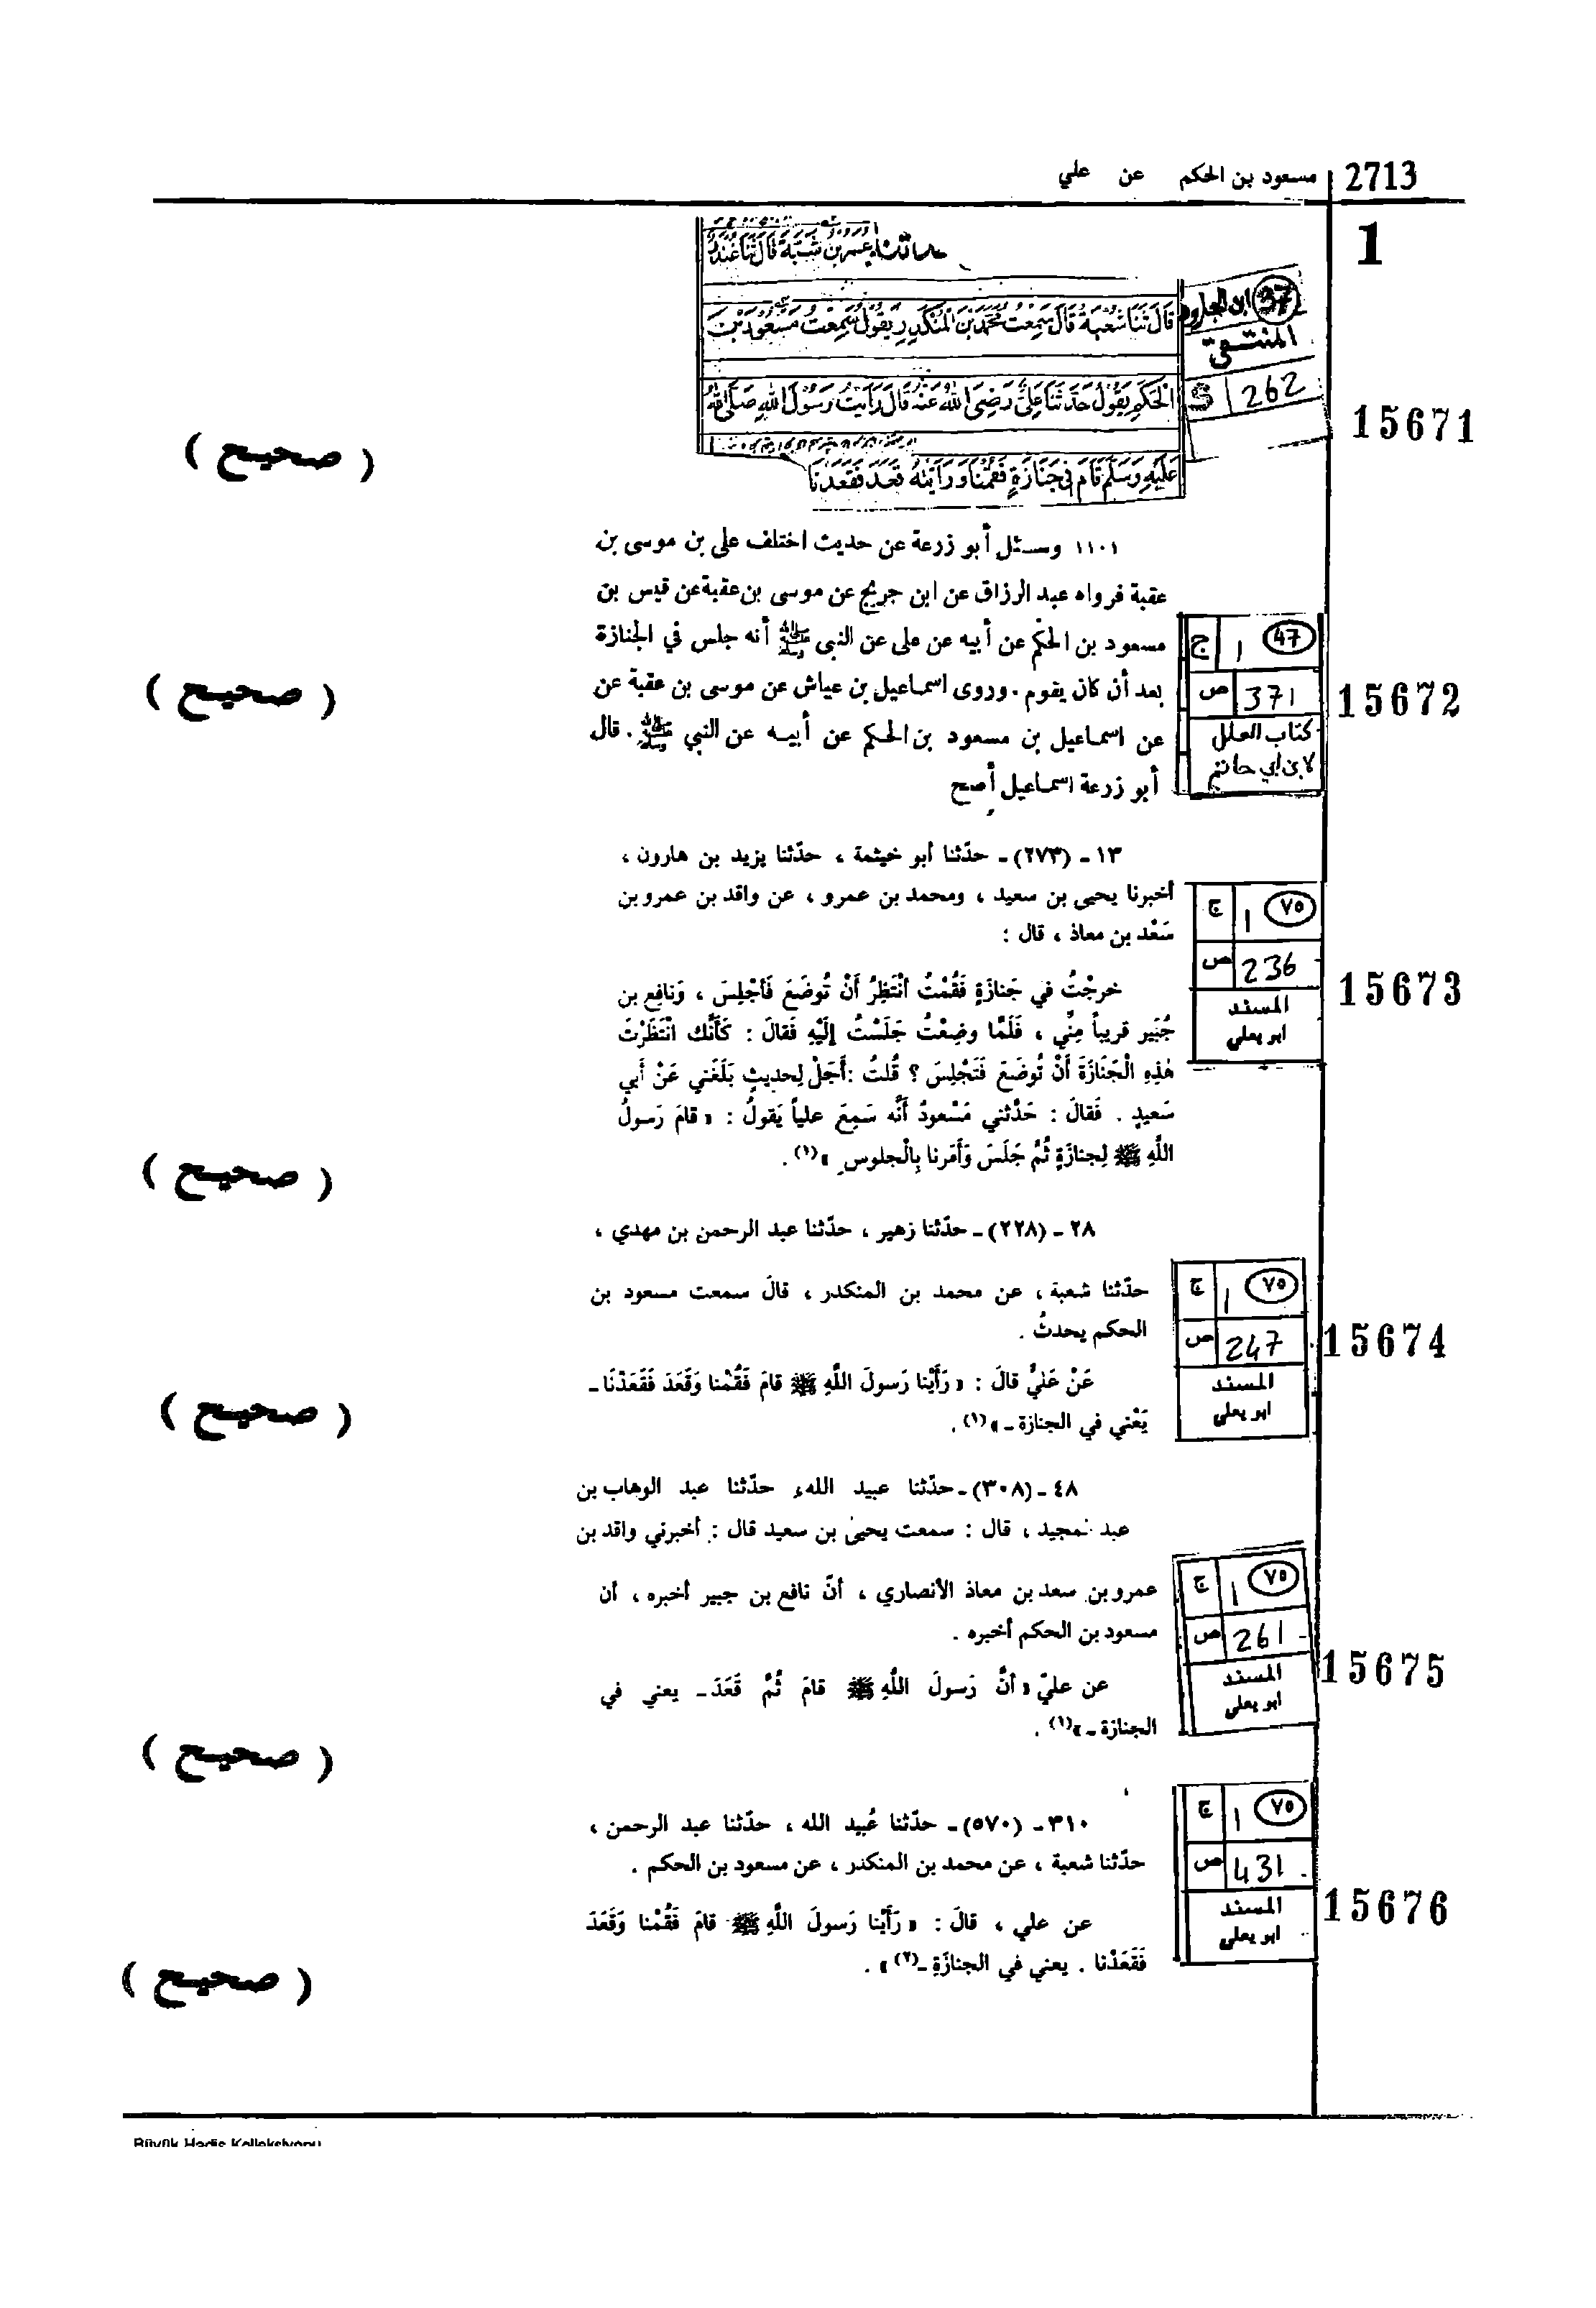 2713 مسعود بن الحكم عن علي
1
حدثنا عمر بن شبة قال ثنا غندر
37 ابن الجارود
المنتقى
S 262
قَالَ ثَنَا شُعْبَةُ قَالَ سَمِعْتُ مُحَمَّدَ بْنَ الْمُنْكَدِرِ يَقُولُ سَمِعْتُ مَسْعُودَ بْنَ
الْحَكَمِ يَقُولُ حَدَّثَنَا عَلِيٌّ رَضِيَ اللهُ عَنْهُ قَالَ رَأَيْتُ رَسُولَ اللهِ صَلَّى اللهُ
عَلَيْهِ وَسَلَّمَ قَامَ فِي جَنَازَةٍ فَقُمْنَا وَرَأَيْتُهُ قَعَدَ فَقَعَدْنَا
15671
( صحيح )
١١٠١ وسئل أبو زرعة عن حديث اختلف على بن موسى بن
عقبة فرواه عبد الرزاق عن ابن جريج عن موسى بن عقبة عن قيس بن
مسعود بن الحكم عن أبيه عن على عن النبي ﷺ أنه جلس في الجنازة
بعد أن كان يقوم . وروى اسماعيل بن عياش عن موسى بن عقبة عن
عن اسماعيل بن مسعود بن الحكم عن أبيه عن النبي ﷺ . قال
أبو زرعة اسماعيل أصح
47 ١ ج
371 ص
كتاب العلل
لابن ابي حاتم
15672
( صحيح )
١٣ - (٢٧٣) - حدّثنا أبو خيثمة ، حدّثنا يزيد بن هارون ،
أخبرنا يحيى بن سعيد ، ومحمد بن عمرو ، عن واقد بن عمرو بن
سَعْد بن معاذ ، قال :
خرجْتُ في جَنازَةٍ فَقُمْتُ أنْتَظِرُ أنْ تُوضَعَ فَأجْلِسَ ، وَنافِع بن
جُبَير قريباً مِنِّي ، فَلَمَّا وضِعْتُ جَلَسْتُ إلَيْهِ فَقالَ : كَأَنَّك انْتَظَرْتَ
هٰذِهِ الْجَنَازَةَ أنْ تُوضَعَ فَتَجْلِسَ ؟ قُلتُ : أَجَلْ لِحديثٍ بَلَغَني عَنْ أبي
سَعيدٍ . فَقالَ : حَدَّثني مَسْعودُ أنَّه سَمِعَ علياً يَقولُ : « قامَ رَسولُ
اللَّهِ ﷺ لِجنازَةٍ ثُمَّ جَلَسَ وَأَمَرنا بِالْجلوسِ »(١) .
٧٥ ١ ج
236 ص
المسند
ابو يعلى
15673
( صحيح )
٢٨ - (٢٢٨) - حدّثنا زهير ، حدّثنا عبد الرحمن بن مهدي ،
حدّثنا شعبة ، عن محمد بن المنكدر ، قالَ سمعت مسعود بن
الحكم يحدثُ .
عَنْ عَليٍّ قالَ : « رَأَيْنا رَسولَ اللَّهِ ﷺ قامَ فَقُمْنا وَقَعَدَ فَقَعَدْنَا -
يَعْني في الجنازة - »(١) .
٧٥ ١ ج
247 ص
المسند
ابو يعلى
15674
( صحيح )
٤٨ - (٣٠٨) - حدّثنا عبيد الله، حدّثنا عبد الوهاب بن
عبد المجيد ، قال : سمعت يحيى بن سعيد قال : أخبرني واقد بن
عمرو بن سعد بن معاذ الأنصاري ، أنّ نافع بن جبير أخبره ، أن
مسعود بن الحكم أخبره .
عن عليّ « أنَّ رَسولَ اللَّهِ ﷺ قامَ ثُمَّ قَعَدَ - يعني في
الجنازة - »(١) .
٧٥ ١ ج
261 ص
المسند
ابو يعلى
15675
( صحيح )
٣١٠ - (٥٧٠) - حدّثنا عُبيد الله ، حدّثنا عبد الرحمن ،
حدّثنا شعبة ، عن محمد بن المنكدر ، عن مسعود بن الحكم .
عن علي ، قالَ : « رَأَيْنا رَسولَ اللَّهِ ﷺ قامَ فَقُمْنا وَقَعَدَ
فَقَعَدْنا . يعني في الجنازَةِ - (٢) » .
٧٥ ١ ج
431 ص
المسند
ابو يعلى
15676
( صحيح )
Büyük Hadis Kolleksiyonu